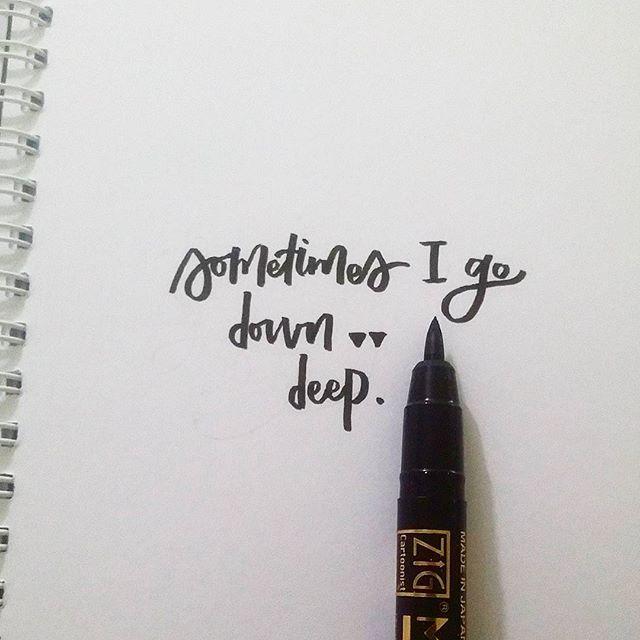 sometimes I go
down ▾▾
deep.
ZIG®
Cartoonist
M
MADE IN JAPA